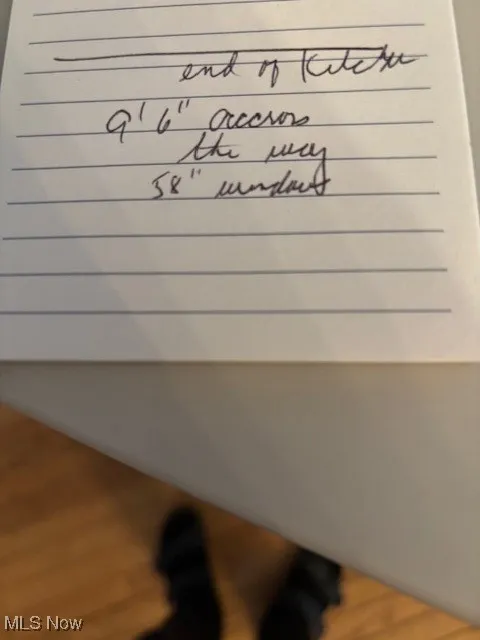 end of Kitchen
9' 6" accross
the way
58" window
MLS Now